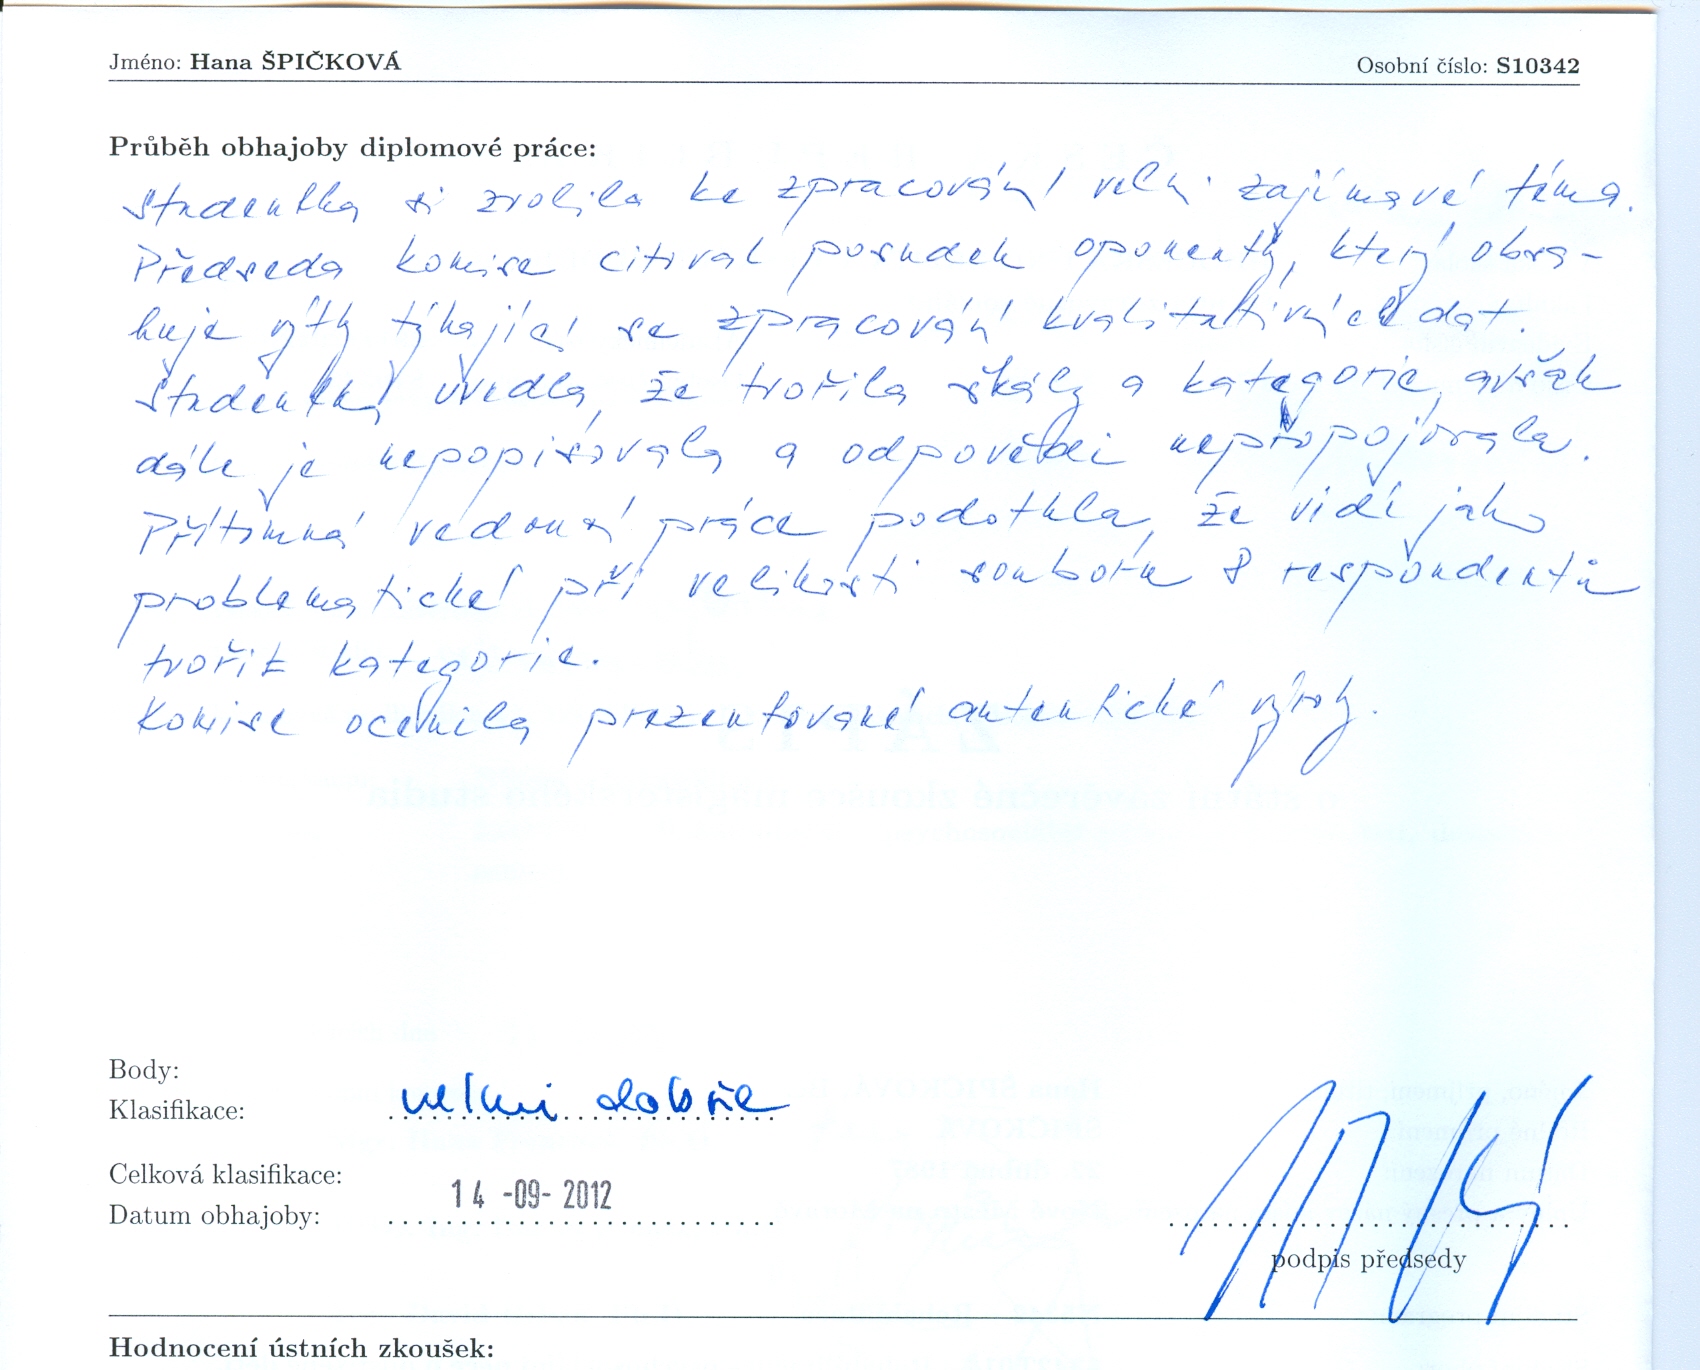 Jméno: Hana ŠPIČKOVÁ Osobní číslo: S10342
Průběh obhajoby diplomové práce:
Studentka si zvolila ke zpracování velmi zajímavé téma.
Předseda komise citoval posudek oponentky, který obsa-
huje výtky týkající se zpracování kvalitativních dat.
Studentka uvedla, že tvořila škály a kategorie, avšak
dále je nepopisovala a odpovědi nepropojovala.
Přítomná vedoucí práce podotkla, že vidí jako
problematické při velikosti souboru 8 respondentů
tvořit kategorie.
Komise ocenila prezentované autentické výroky.
Body:
Klasifikace: velmi dobře
Celková klasifikace:
Datum obhajoby: 14 -09- 2012
podpis předsedy
Hodnocení ústních zkoušek: